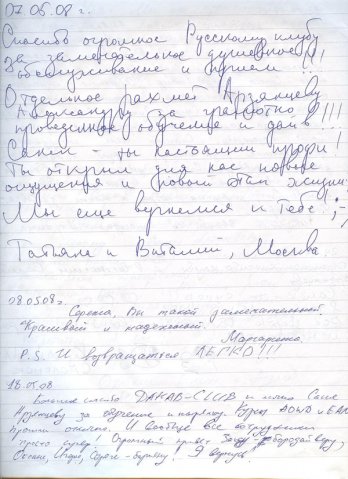 07.05.08 г.
Спасибо огромное Русскому клубу
За замечательное душевное
обслуживание и прием !!!
Отдельное рахмет Арзянцеву
Александру за грамотно
проведенное обучение и дайв !!!
Саня - ты настоящий профи!
Ты открыл для нас новые
ощущения и новый этап жизни
Мы еще вернемся к тебе! ;-)
Татьяна и Виталий, Москва.
08.05.08г.
Сережа, Вы такой замечательный.
Красивый и надежный.
Маргарита.
P.S. И возвращаться ЛЕГКО!!!
18.05.08
Большое спасибо DAHAB-CLUB и лично Саше
за обучение и Курсы AOWD и EAN
прошли отлично. И вообще все сотрудники
просто супер! Огромный привет
Оксане, Сереге - Я вернусь!